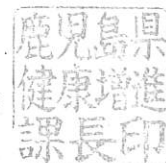 鹿児島県
健康増進
課長印